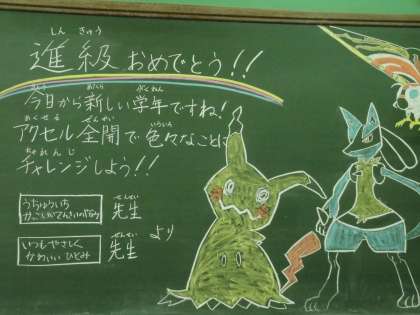 しん きゅう
進級おめでとう!!
きょう あたら がくねん
今日から新しい学年ですね!
あくせる ぜんかい いろいろ
アクセル全開で色々なことに
ちゃれんじ
チャレンジしよう!!
うちゅういち
せんせい
先生
いつもやさしく
かわいい ひとみ
せんせい
先生
より